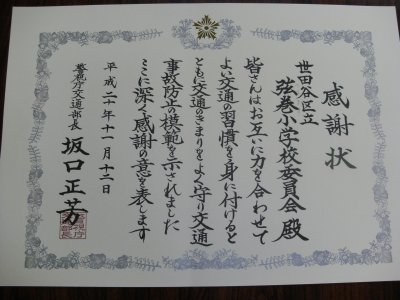 感謝状
世田谷区立
弦巻小学校委員会殿
皆さんはお互いに力を合わせて
よい交通の習慣を身に付けると
ともに交通のきまりをよく守り交通
事故防止の模範を示されました
ここに深く感謝の意を表します
平成二十年十一月十二日
警視庁交通部長 坂口正芳